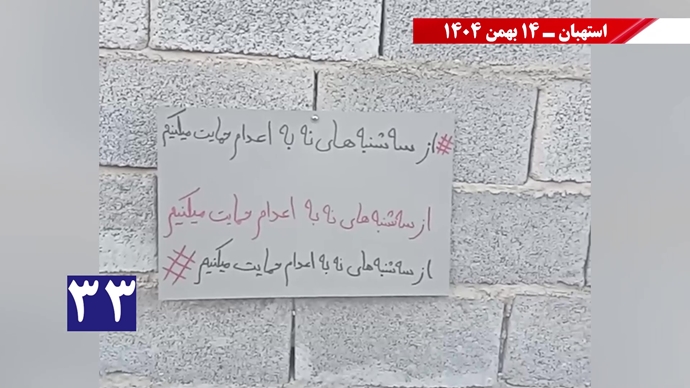 استهبان ــ ۱۴ بهمن ۱۴۰۴
#از سه شنبه های نه به اعدام حمایت میکنیم
از سه شنبه های نه به اعدام حمایت میکنیم
از سه شنبه های نه به اعدام حمایت میکنیم#
۳۳